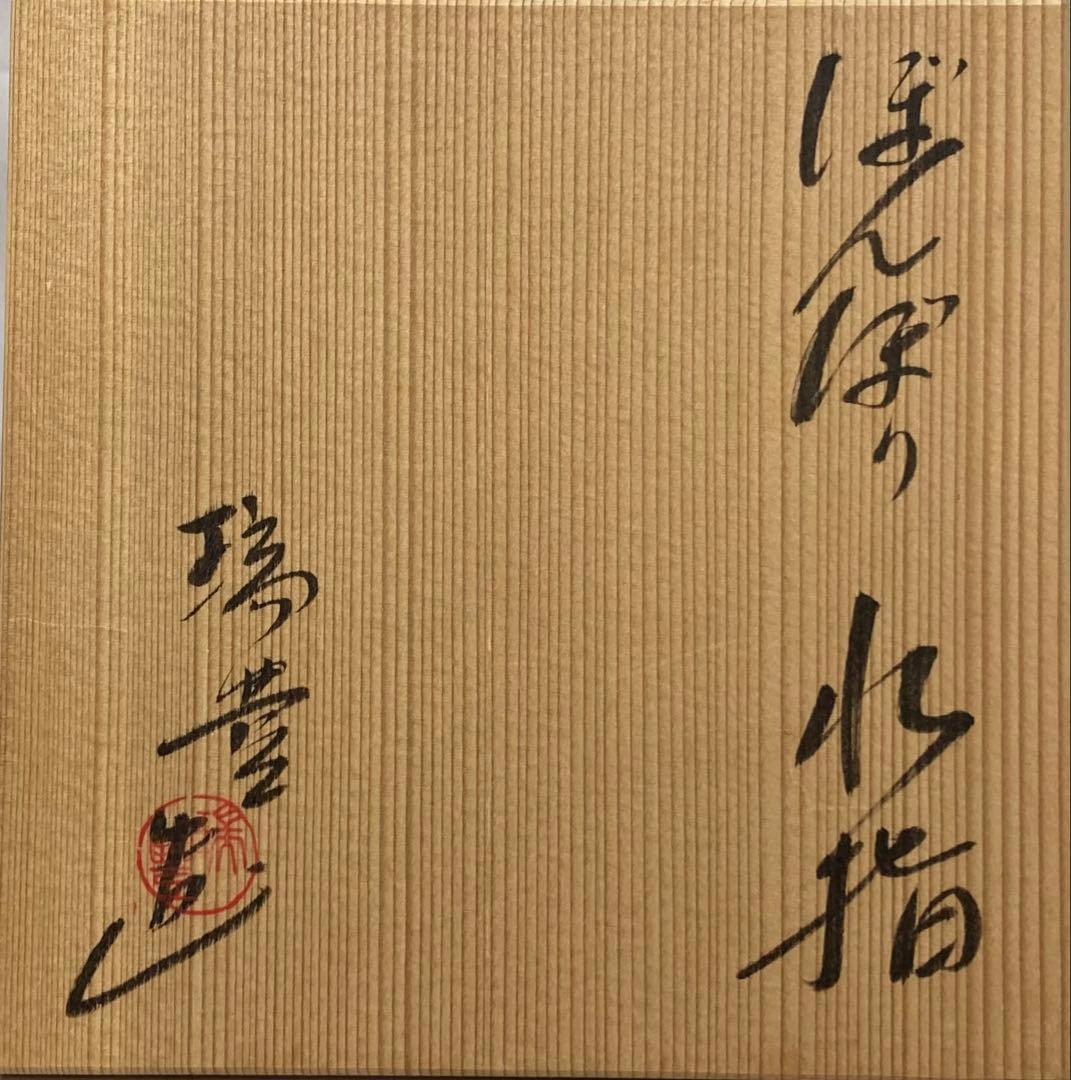 ぼんぼり 水指
瑞豊造